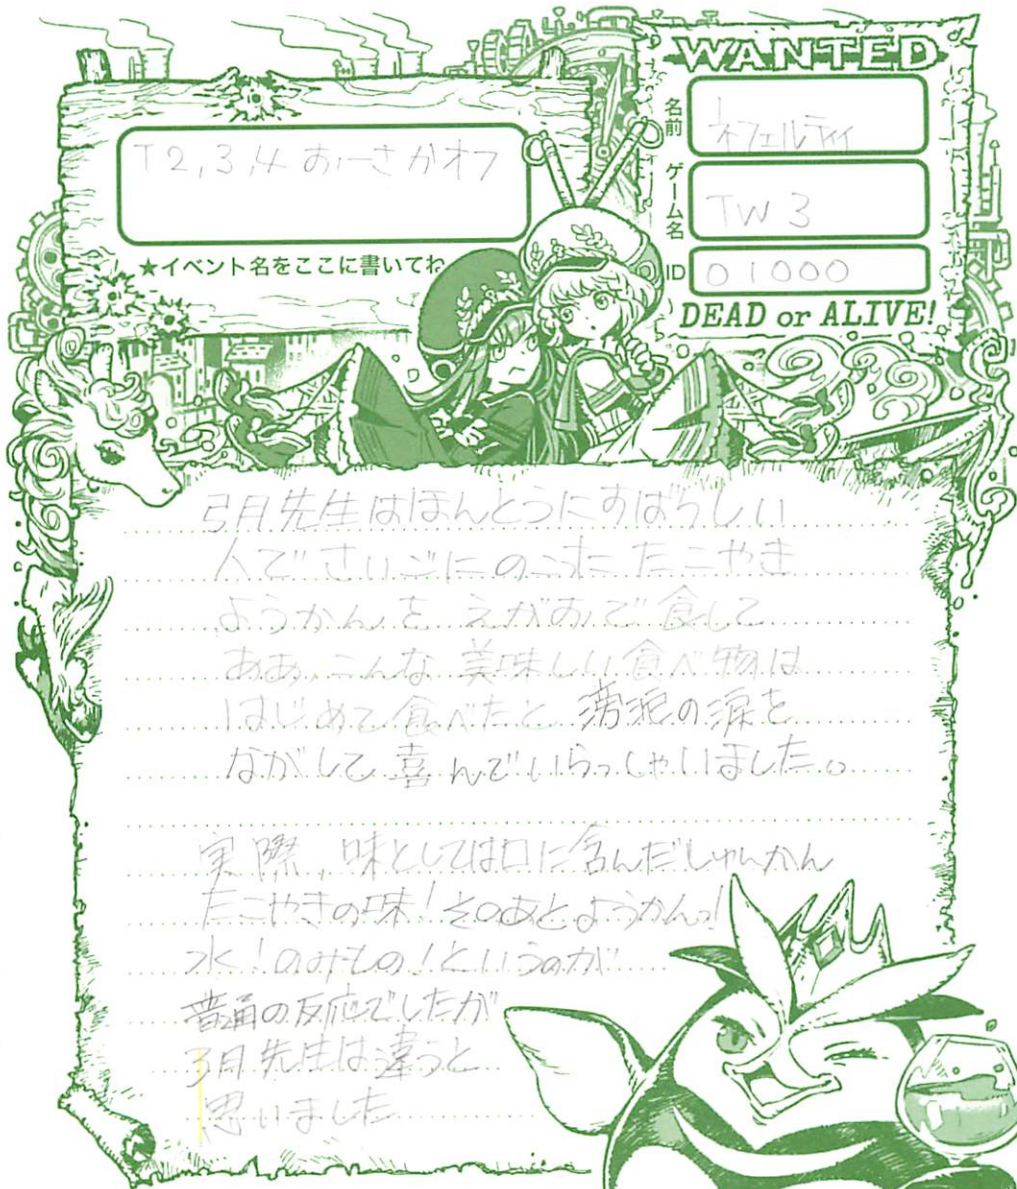 WANTED
名前
ネフェルティ
ゲーム名
TW3
ID
01000
DEAD or ALIVE!
T2,3,4 おーさかオフ
★イベント名をここに書いてね
弓月先生はほんとうにすばらしい
人でさいごにのこったたこやき
ようかんをえがおで食して
ああ、こんな美味しい食べ物は
はじめて食べたと滂沱の涙を
ながして喜んでいらっしゃいました。
実際、味としては口に含んだしゅんかん
たこやきの味!そのあとようかんっ!
水!のみもの!というのが
普通の反応でしたが
弓月先生は違うと
思いました